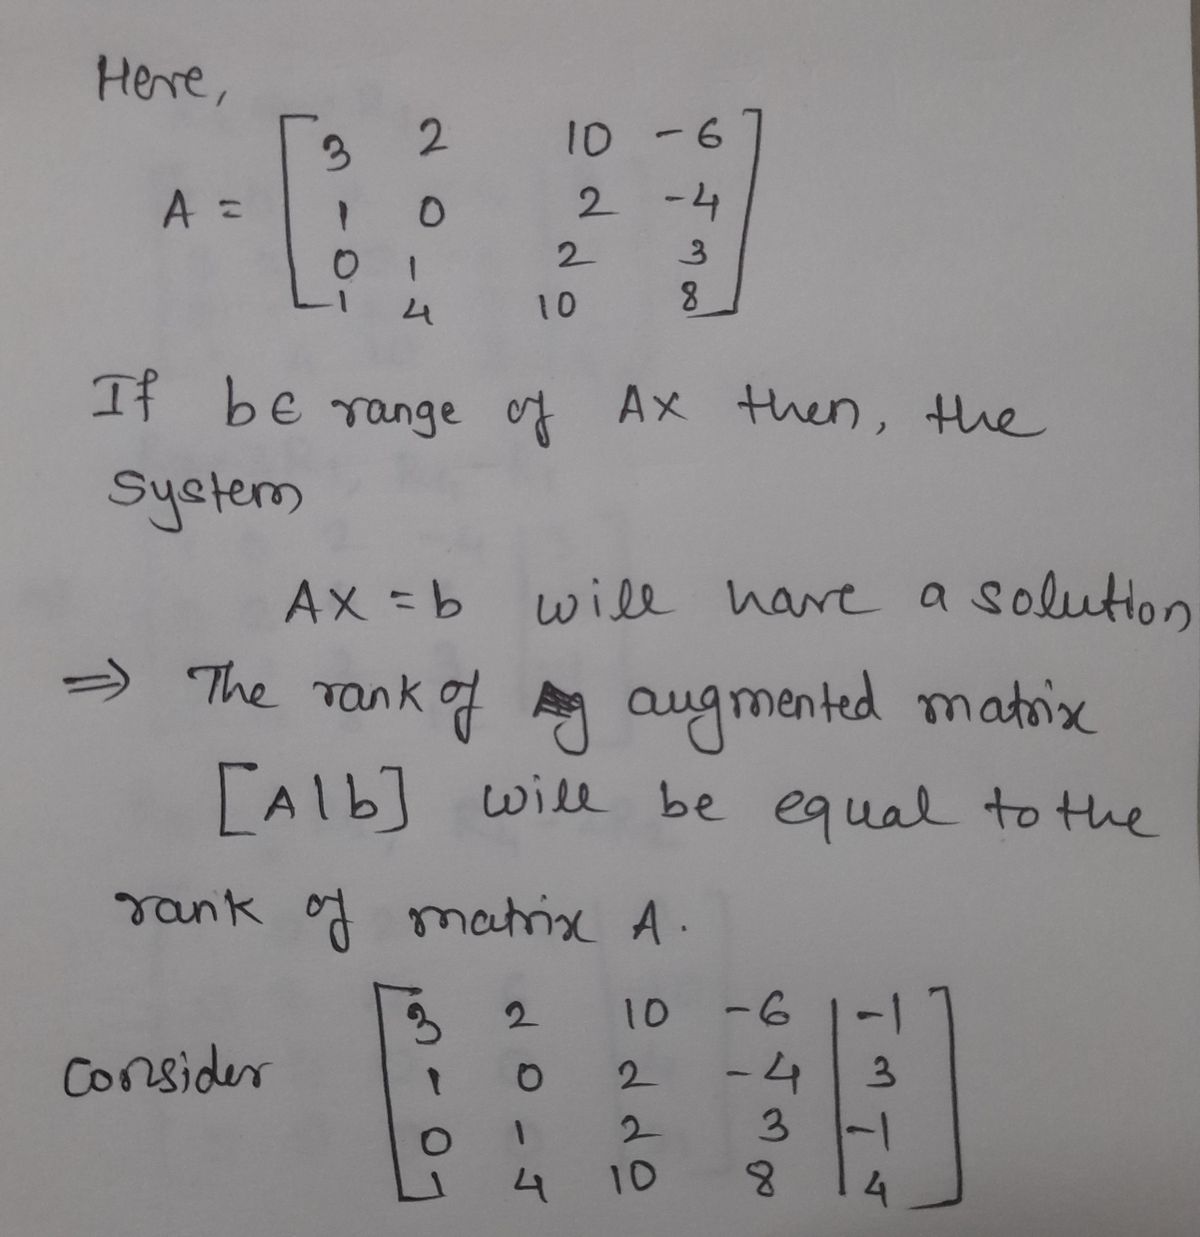 Here,
A = [ 3 2 10 -6
1 0 2 -4
0 1 2 3
1 4 10 8 ]
If b ∈ range of AX then, the
System
AX = b will have a solution
⇒ The rank of augmented matrix
[A|b] will be equal to the
rank of matrix A.
Consider [ 3 2 10 -6 | -1
1 0 2 -4 | 3
0 1 2 3 | -1
1 4 10 8 | 4 ]